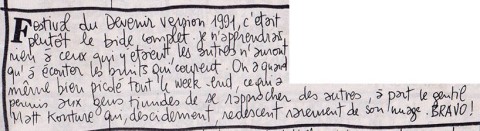 Festival du Devenir version 1991, c'était
plutôt le bide complet. Je n'apprendrais
rien à ceux qui y étaient les autres n'auront
qu'à écouter les bruits qui courent. On a quand
même bien picolé tout le week-end, ce qui a
permis aux gens timides de se rapprocher des autres à part le gentil
Matt Konture qui, décidément, redescent rarement de son nuage. BRAVO!